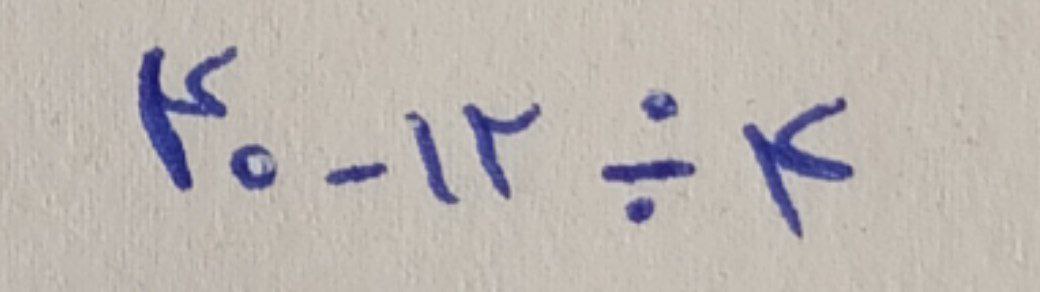 ۴۰ - ۱۲ ÷ ۴